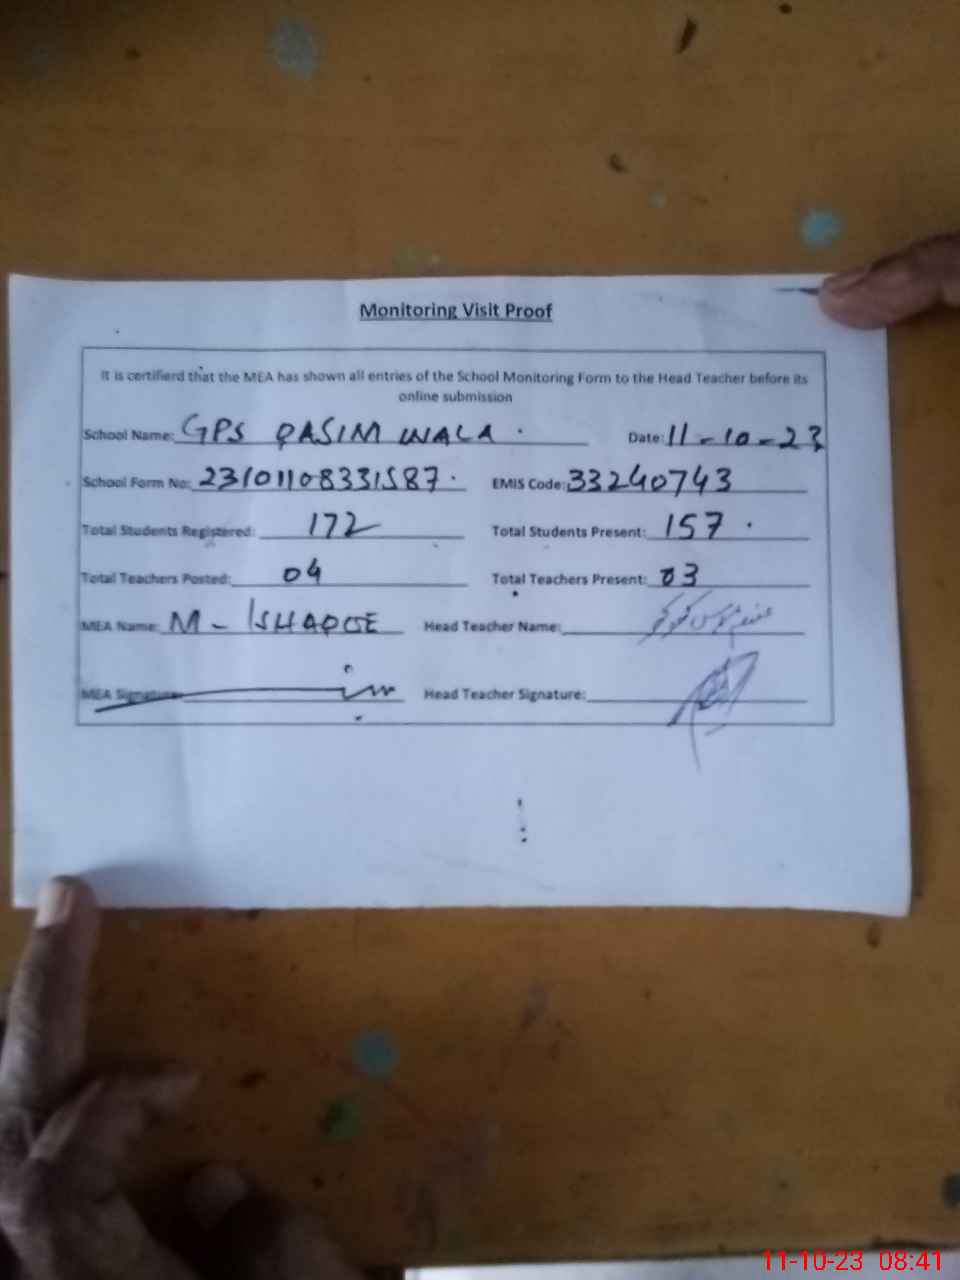 Monitoring Visit Proof
It is certifierd that the MEA has shown all entries of the School Monitoring Form to the Head Teacher before its
online submission
School Name: GPS QASIM WALA Date: 11-10-23
School Form No: 23101108331587 EMIS Code: 33240743
Total Students Registered: 172 Total Students Present: 157
Total Teachers Posted: 04 Total Teachers Present: 03
MEA Name: M- ISHAQUE Head Teacher Name:
MEA Signature: Head Teacher Signature:
11-10-23 08:41